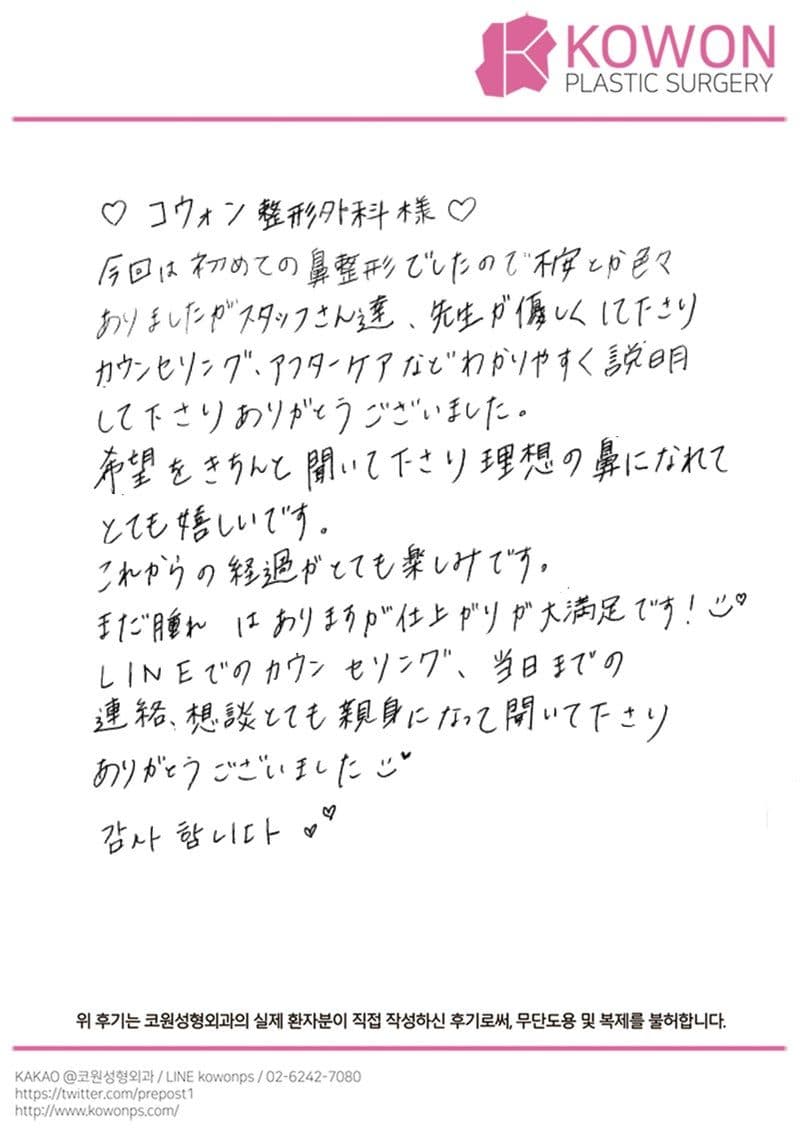 KOWON
PLASTIC SURGERY
♡ コウォン整形外科様♡
今回は初めての鼻整形でしたので不安とか色々
ありましたがスタッフさん達、先生が優しくして下さり
カウンセリング、アフターケアなどわかりやすく説明
して下さりありがとうございました。
希望をきちんと聞いて下さり理想の鼻になれて
とても嬉しいです。
これからの経過がとても楽しみです。
まだ腫れはありますが仕上がりが大満足です!
LINEでのカウンセリング、当日までの
連絡、想談とても親身になって聞いて下さり
ありがとうございました
감사 합니다
위 후기는 코원성형외과의 실제 환자분이 직접 작성하신 후기로써, 무단도용 및 복제를 불허합니다.
KAKAO @코원성형외과 / LINE kowonps / 02-6242-7080
https://twitter.com/prepost1
http://www.kowonps.com/